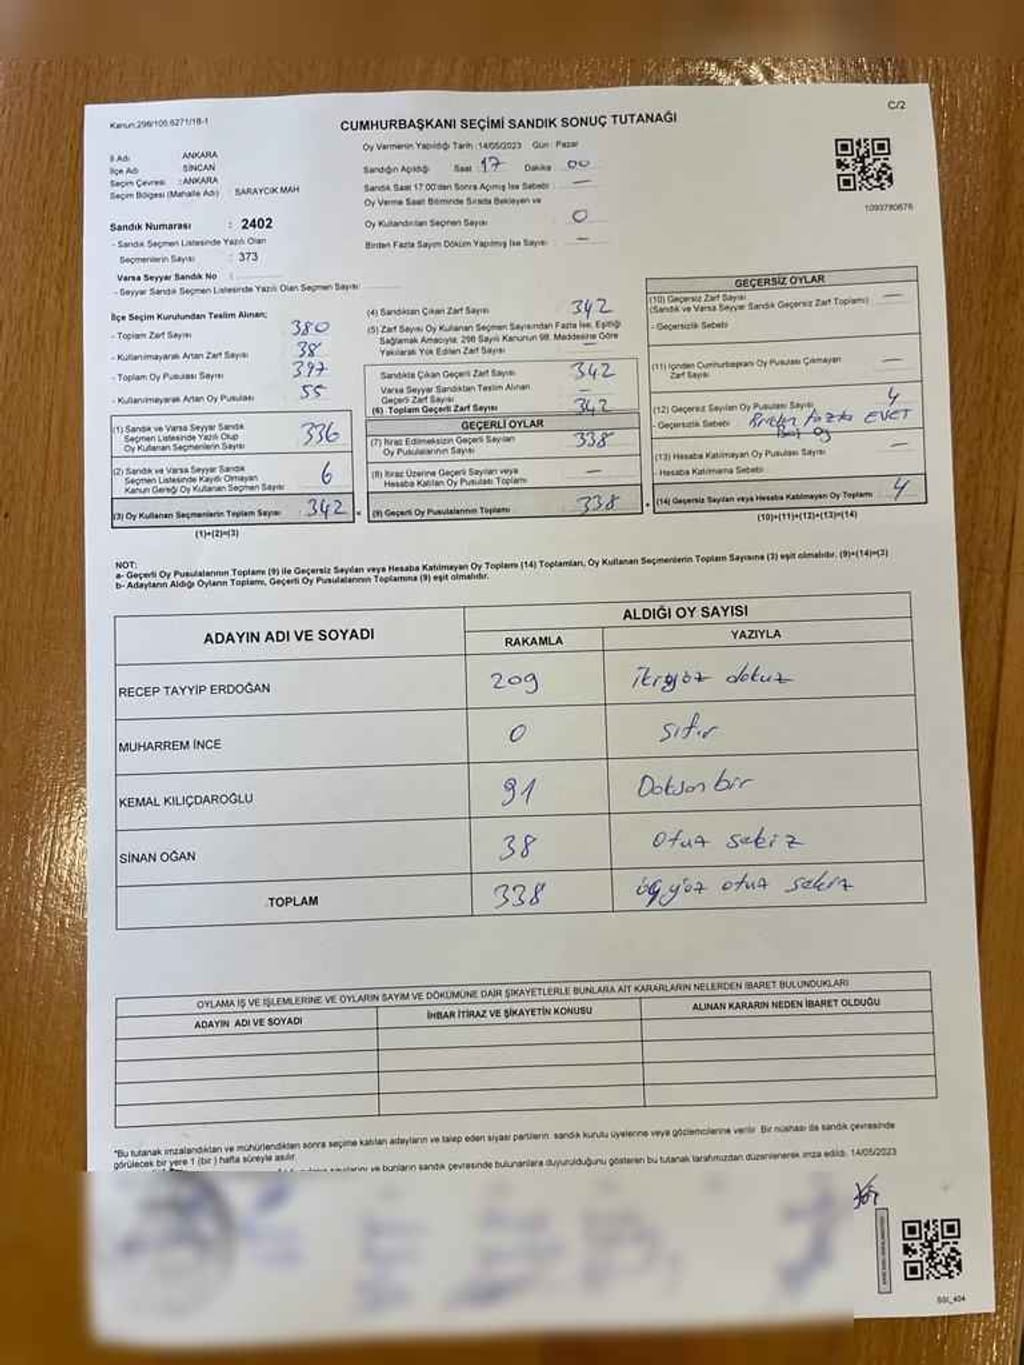 C/2
Kanun:298/106;6271/18-1
CUMHURBAŞKANI SEÇİMİ SANDIK SONUÇ TUTANAĞI
Oy Vermenin Yapıldığı Tarih :14/05/2023 Gün : Pazar
İl Adı ANKARA
İlçe Adı SİNCAN
Seçim Çevresi : ANKARA
Seçim Bölgesi (Mahalle Adı) : SARAYCIK MAH
Sandığın Açıldığı Saat 17 Dakika 00
Sandık Saat 17:00'den Sonra Açılmış İse Sebebi : —
Oy Verme Saati Bitiminde Sırada Bekleyen ve
Oy Kullandırılan Seçmen Sayısı 0
Birden Fazla Sayım Döküm Yapılmış İse Sayısı : —
1093780676
Sandık Numarası : 2402
- Sandık Seçmen Listesinde Yazılı Olan
Seçmenlerin Sayısı : 373
Varsa Seyyar Sandık No :
- Seyyar Sandık Seçmen Listesinde Yazılı Olan Seçmen Sayısı:
İlçe Seçim Kurulundan Teslim Alınan;
- Toplam Zarf Sayısı : 380
- Kullanılmayarak Artan Zarf Sayısı : 38
- Toplam Oy Pusulası Sayısı : 397
- Kullanılmayarak Artan Oy Pusulası : 55
(1) Sandık ve Varsa Seyyar Sandık
Seçmen Listesinde Yazılı Olup
Oy Kullanan Seçmenlerin Sayısı 336
(2) Sandık ve Varsa Seyyar Sandık
Seçmen Listesinde Kayıtlı Olmayan
Kanun Gereği Oy Kullanan Seçmen Sayısı 6
(3) Oy Kullanan Seçmenlerin Toplam Sayısı : 342
(1)+(2)=(3)
(4) Sandıktan Çıkan Zarf Sayısı 342
(5) Zarf Sayısı Oy Kullanan Seçmen Sayısından Fazla İse, Eşitliği
Sağlamak Amacıyla; 298 Sayılı Kanunun 98. Maddesine Göre
Yakılarak Yok Edilen Zarf Sayısı —
Sandıkta Çıkan Geçerli Zarf Sayısı 342
Varsa Seyyar Sandıktan Teslim Alınan
Geçerli Zarf Sayısı —
(6) Toplam Geçerli Zarf Sayısı 342
GEÇERLİ OYLAR
(7) İtiraz Edilmeksizin Geçerli Sayılan
Oy Pusulalarının Sayısı 338
(8) İtiraz Üzerine Geçerli Sayılan veya
Hesaba Katılan Oy Pusulası Toplamı —
(9) Geçerli Oy Pusulalarının Toplamı 338
GEÇERSİZ OYLAR
(10) Geçersiz Zarf Sayısı
(Sandık ve Varsa Seyyar Sandık Geçersiz Zarf Toplamı) —
- Geçersizlik Sebebi
(11) İçinden Cumhurbaşkanı Oy Pusulası Çıkmayan
Zarf Sayısı —
(12) Geçersiz Sayılan Oy Pusulası Sayısı 4
- Geçersizlik Sebebi Birden fazla EVET
(13) Hesaba Katılmayan Oy Pusulası Sayısı —
- Hesaba Katılmama Sebebi
(14) Geçersiz Sayılan veya Hesaba Katılmayan Oy Toplamı 4
(10)+(11)+(12)+(13)=(14)
NOT:
a- Geçerli Oy Pusulalarının Toplamı (9) ile Geçersiz Sayılan veya Hesaba Katılmayan Oy Toplamı (14) Toplamları, Oy Kullanan Seçmenlerin Toplam Sayısına (3) eşit olmalıdır. (9)+(14)=(3)
b- Adayların Aldığı Oyların Toplamı, Geçerli Oy Pusulalarının Toplamına (9) eşit olmalıdır.
ADAYIN ADI VE SOYADI ALDIĞI OY SAYISI
RAKAMLA YAZIYLA
RECEP TAYYİP ERDOĞAN 209 ikiyüz dokuz
MUHARREM İNCE 0 sıfır
KEMAL KILIÇDAROĞLU 91 Doksan bir
SİNAN OĞAN 38 otuz sekiz
TOPLAM 338 üçyüz otuz sekiz
OYLAMA İŞ VE İŞLEMLERİNE VE OYLARIN SAYIM VE DÖKÜMÜNE DAİR ŞİKAYETLERLE BUNLARA AİT KARARLARIN NELERDEN İBARET BULUNDUKLARI
ADAYIN ADI VE SOYADI İHBAR İTİRAZ VE ŞİKAYETİN KONUSU ALINAN KARARIN NEDEN İBARET OLDUĞU
*Bu tutanak imzalandıktan ve mühürlendikten sonra seçime katılan adayların ve talep eden siyasi partilerin sandık kurulu üyelerine veya gözlemcilerine verilir. Bir nüshası da sandık çevresinde
görülecek bir yere 1 (bir) hafta süreyle asılır.
ve bunların sandık çevresinde bulunanlara duyurulduğunu gösteren bu tutanak tarafımızdan düzenlenerek imza edildi. 14/05/2023